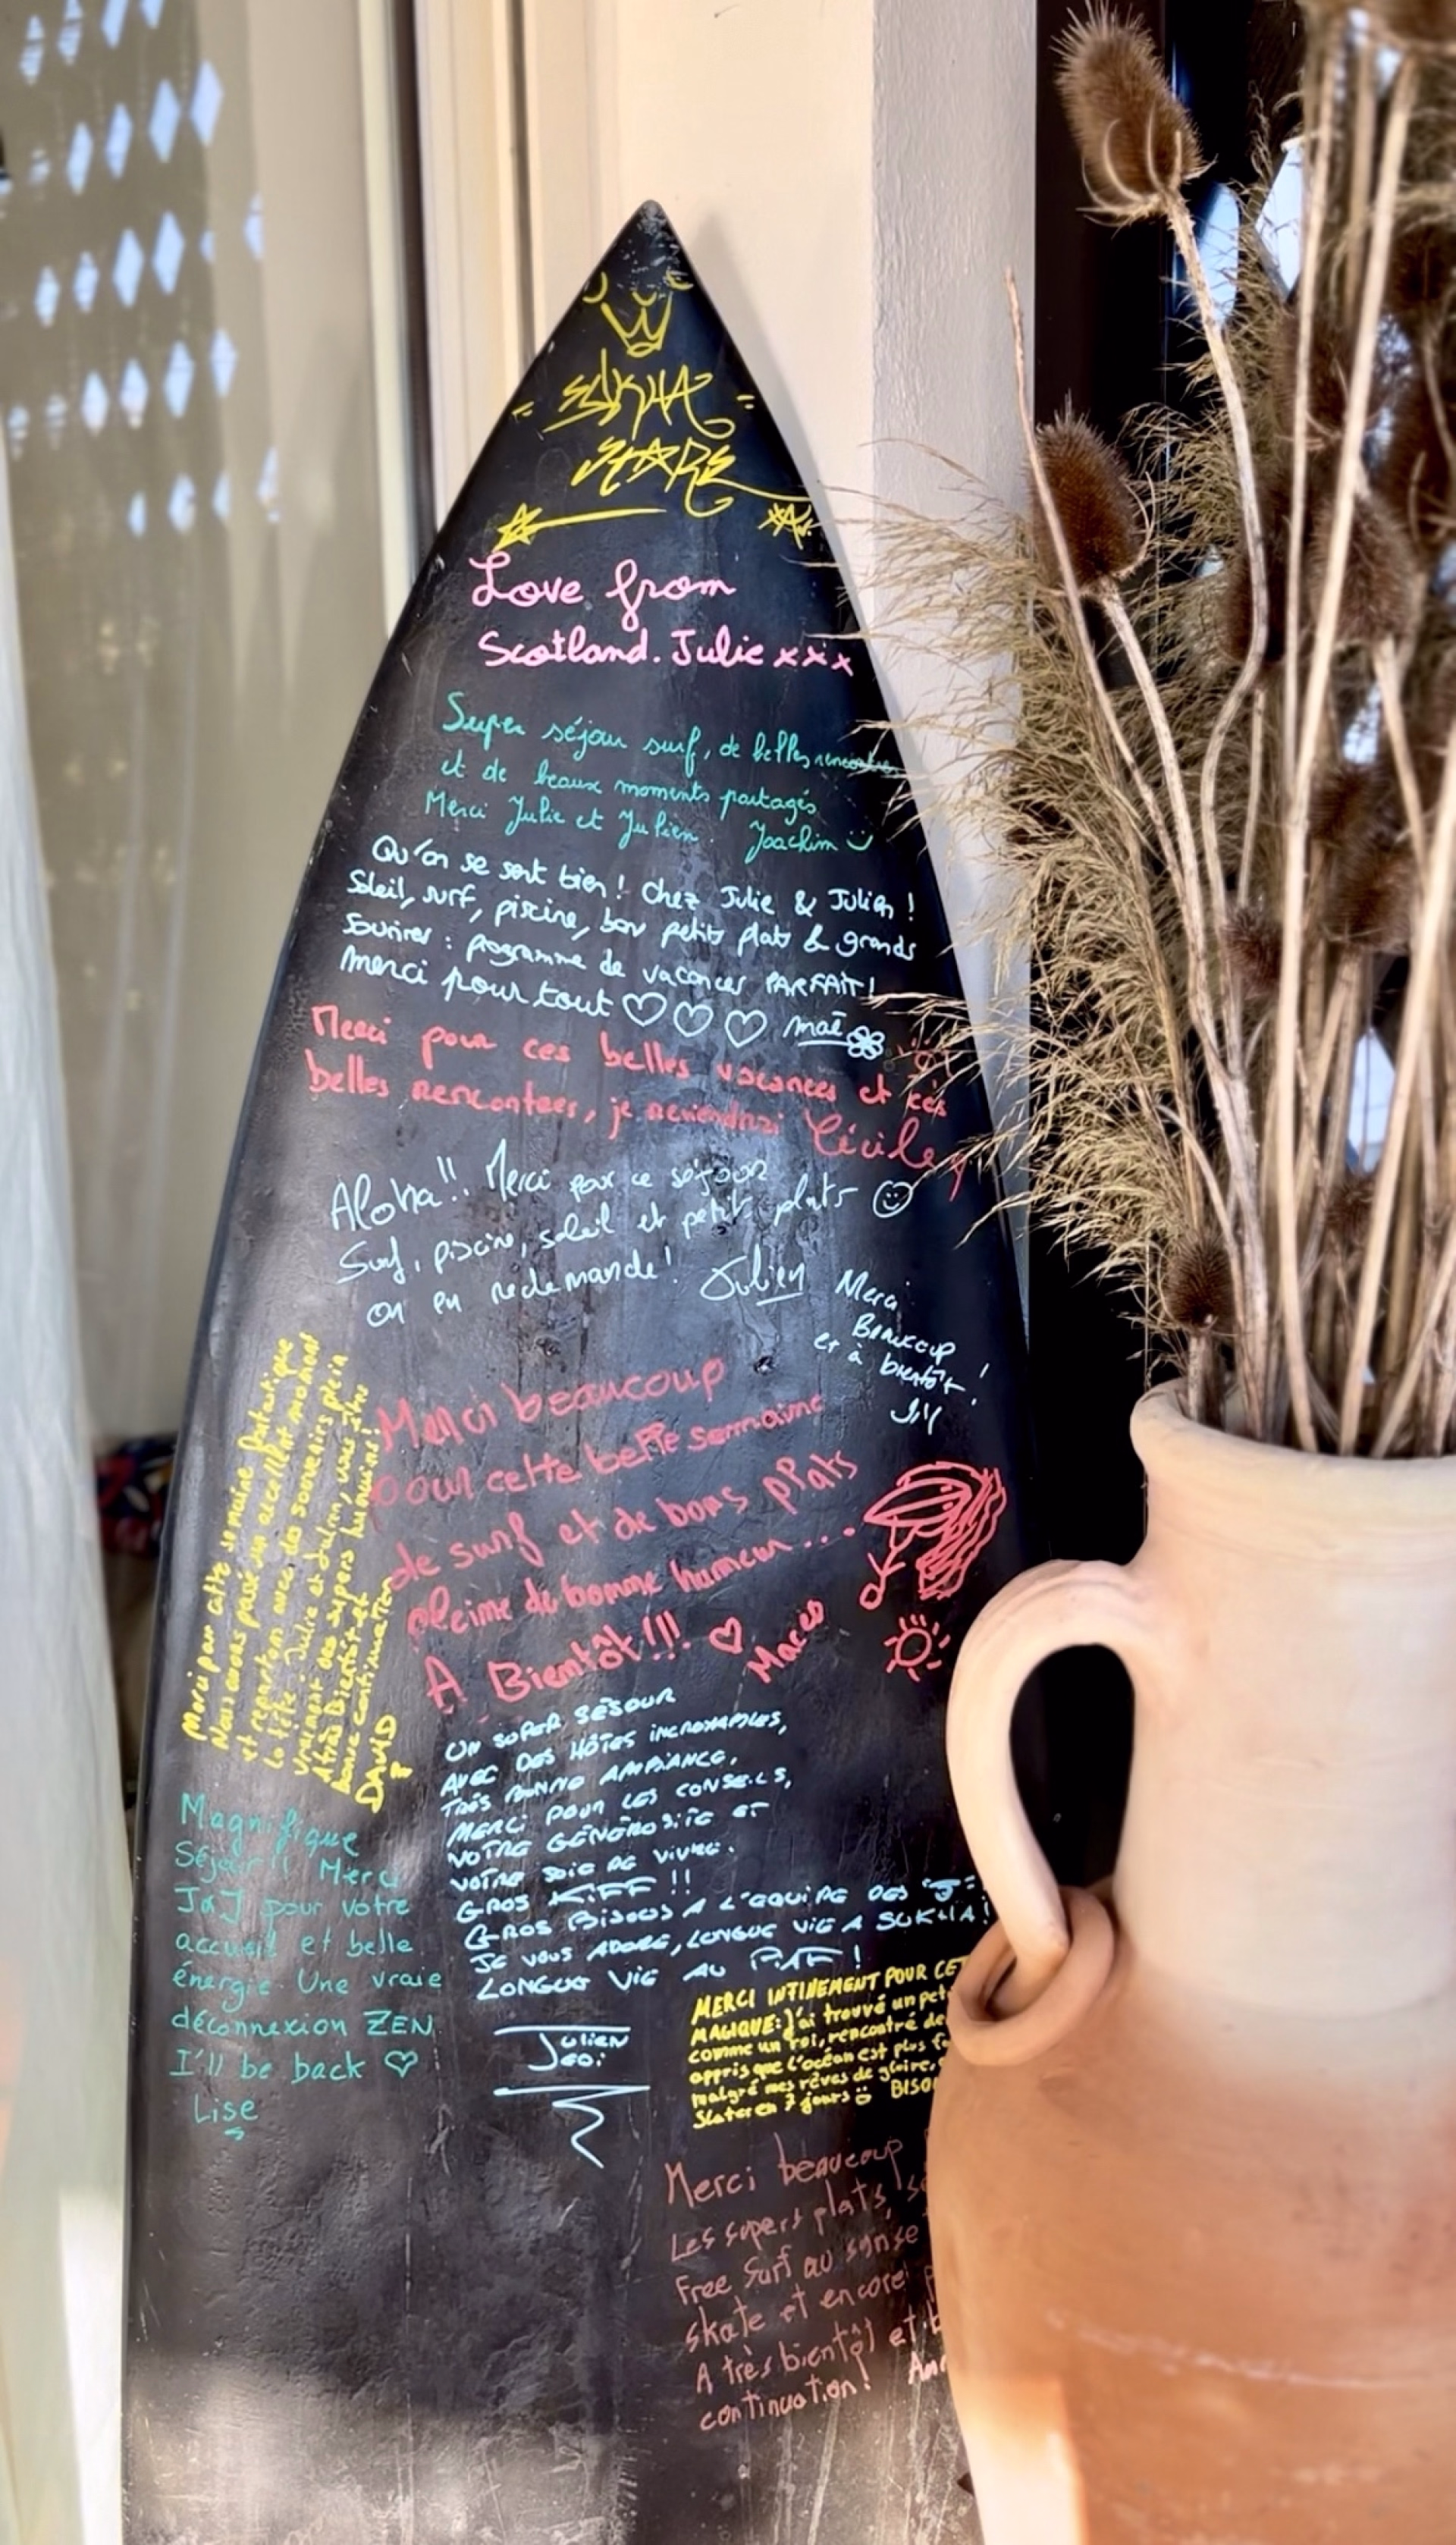 SUKHA
STARS
Love from
Scotland. Julie xxx
Super séjour surf, de belles rencontres
et de beaux moments partagés
Merci Julie et Julien. Joachim
Qu'on se sent bien! Chez Julie & Julien!
Soleil, surf, piscine, bon petits plats & grands
Sourires : programme de vacances PARFAIT!
Merci pour tout ♡ ♡ ♡ maé
Merci pour ces belles vacances et ces
belles rencontres, je reviendrai Cécile
Aloha!! Merci pour ce séjour
Surf, piscine, soleil et petits plats ☺
on en redemande! Julien
Merci
Beaucoup
et à bientôt!
Merci beaucoup
pour cette belle semaine
de surf et de bons plats
pleine de bonne humeur...
A Bientôt!!! ♡
Merci pour cette semaine fantastique
Nous avons passé un excellent moment
et repartons avec des souvenirs plein
la tête. Julie et Julien, vous êtes
vraiment des supers humains!
A très Bientôt et
bonne continuation
DAVID
UN SUPER SÉJOUR
AVEC DES HÔTES INCROYABLES,
TRÈS BONNE AMBIANCE,
MERCI POUR LES CONSEILS,
VOTRE GÉNÉROSITÉ ET
VOTRE JOIE DE VIVRE.
GROS KIFF !!
GROS BISOUS A L'EQUIPE DES "J"
JE VOUS ADORE, LONGUE VIE A SUKHA!
LONGUE VIE AU PIAF!
JULIEN
Magnifique
Séjour!! Merci
J&J pour votre
accueil et belle
énergie. Une vraie
déconnexion ZEN
I'll be back ♡
Lise
MERCI INTINEMENT POUR CET
MAGIQUE: J'ai trouvé un pet
comme un roi, rencontré de
appris que l'océan est plus fo
malgré mes rêves de gloire,
Slater en 7 jours BISOU
Merci beaucoup
Les supers plats, s
Free Surf au
skate et encore
A très bientôt et b
continuation!